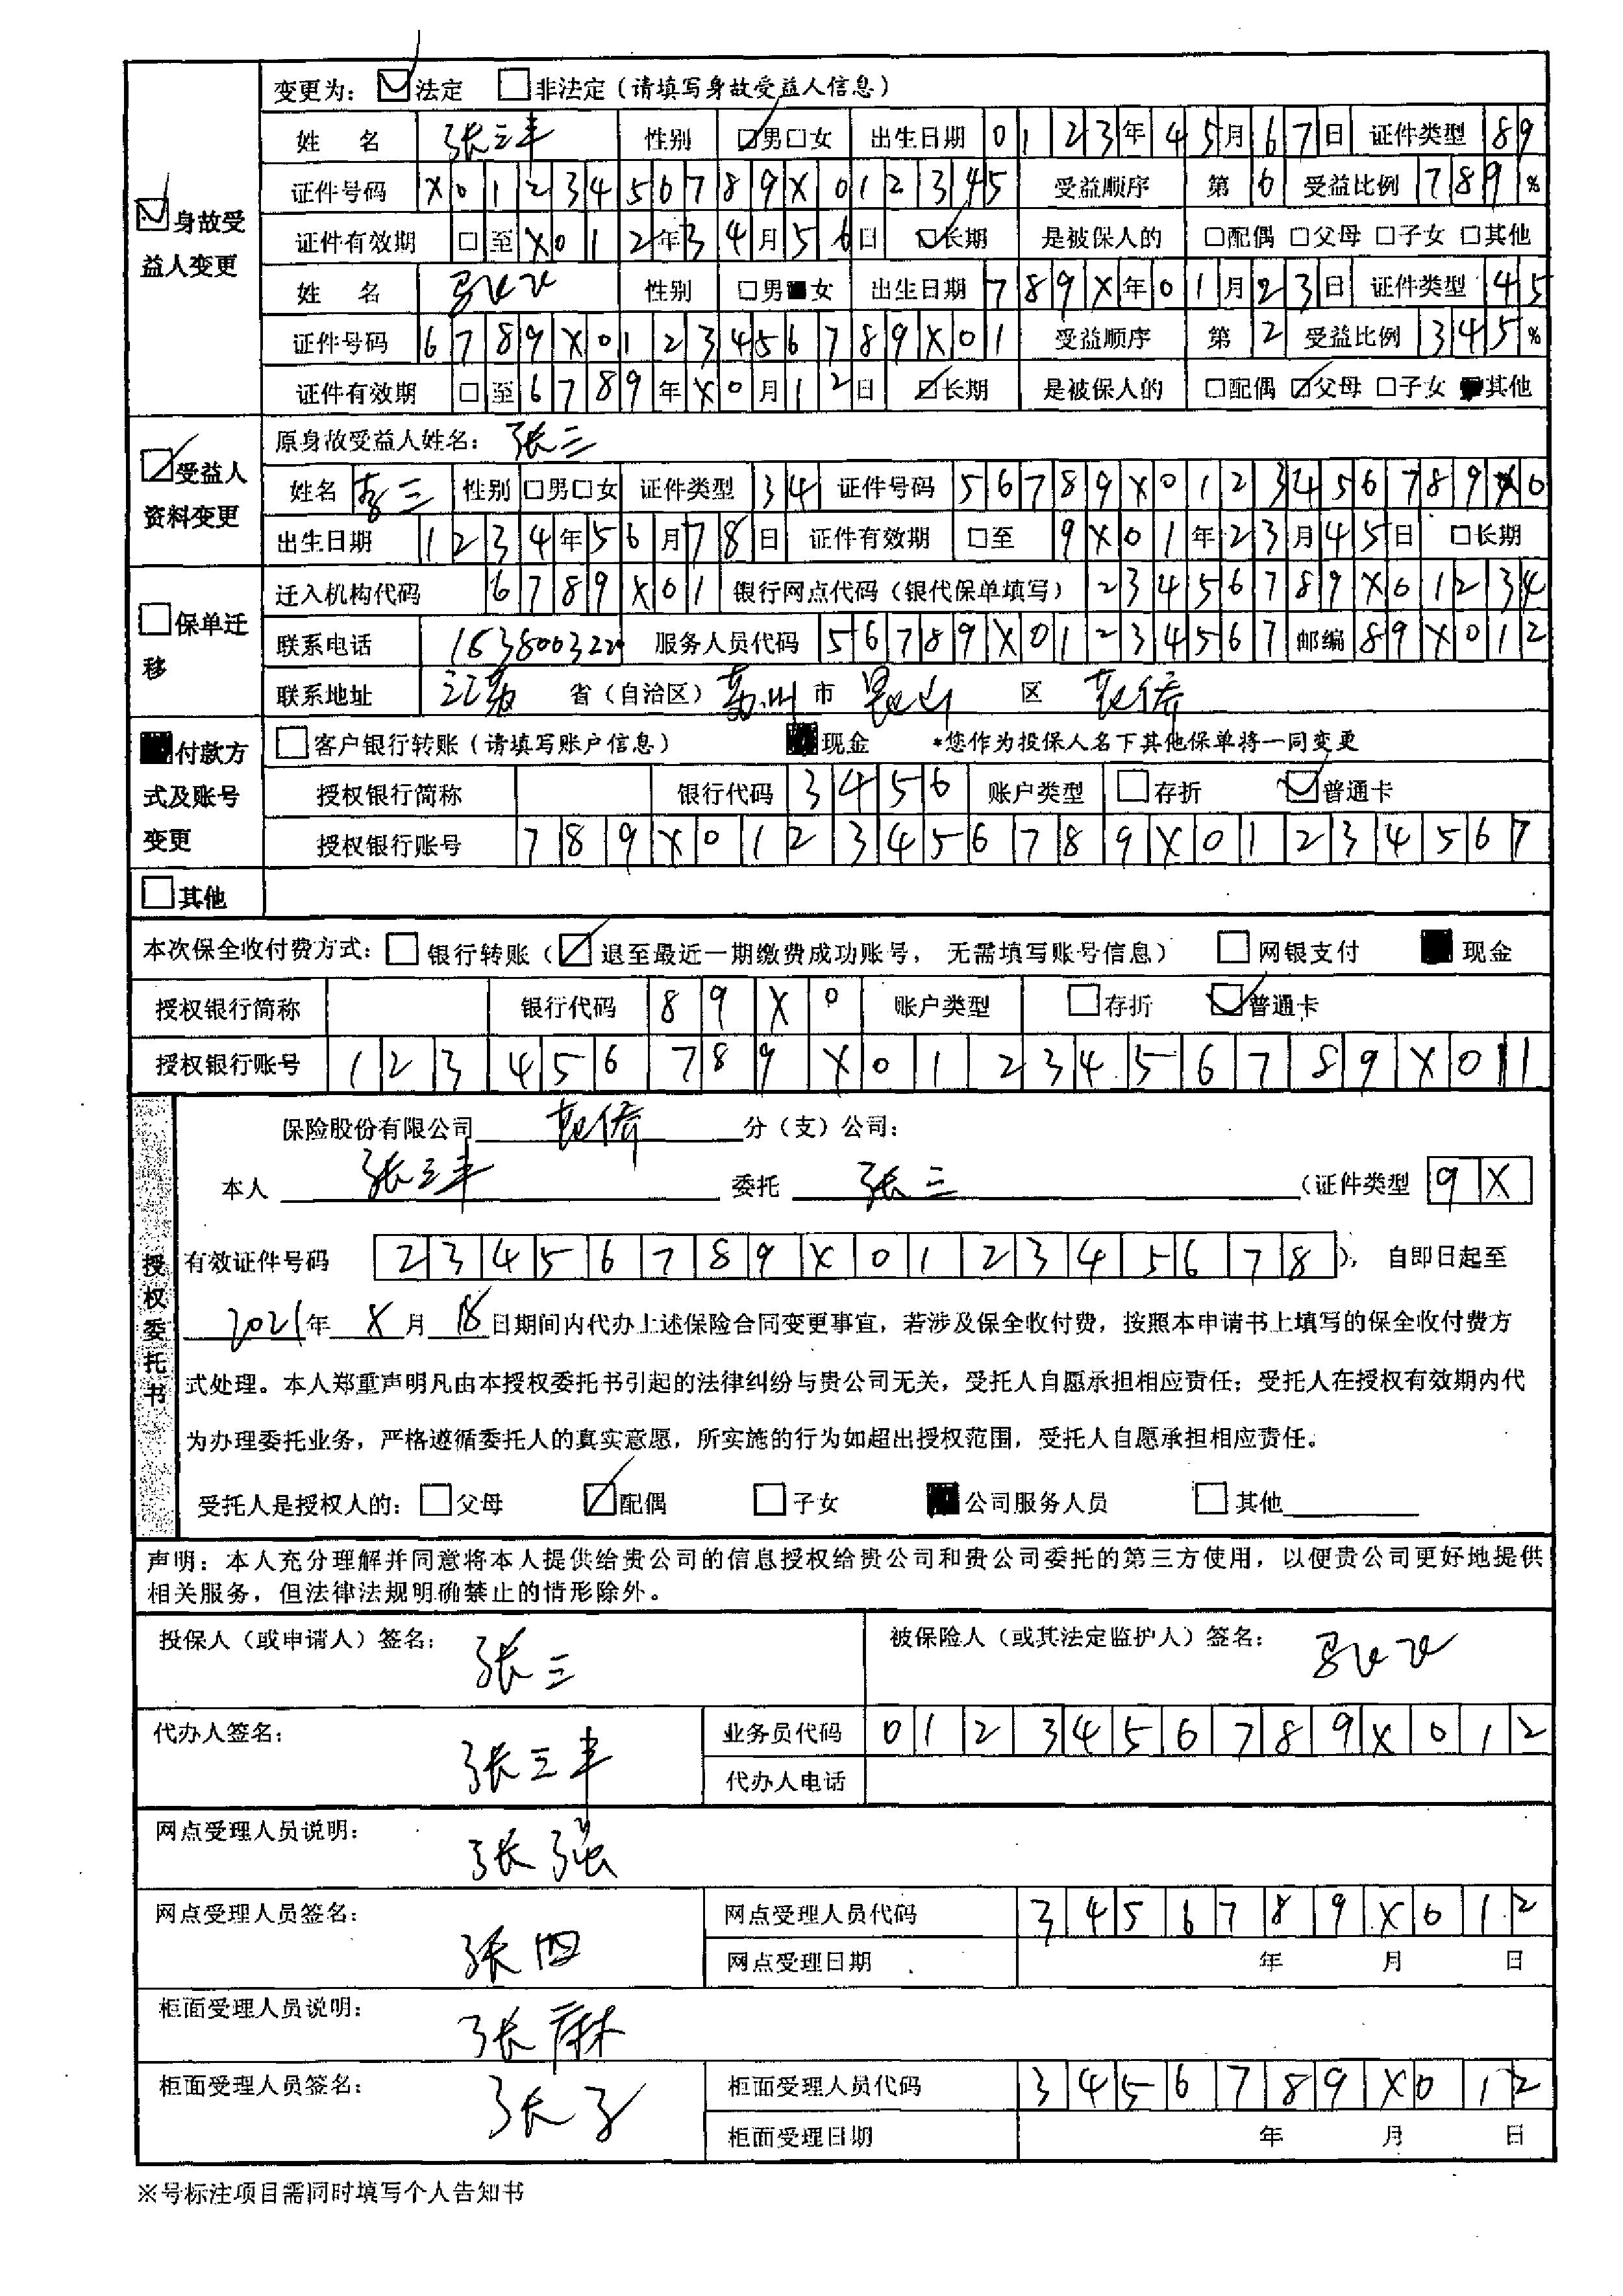 变更为： ☑法定 ☐非法定（请填写身故受益人信息）
姓 名 张三丰 性别 ☑男☐女 出生日期 0123年45月67日 证件类型 89
证件号码 X0123456789X012345 受益顺序 第6 受益比例 789%
☑身故受益人变更
证件有效期 ☐至X012年34月56日 ☑长期 是被保人的 ☐配偶 ☐父母 ☐子女 ☐其他
姓 名 性别 ☐男■女 出生日期 789X年01月23日 证件类型 45
证件号码 6789X0123456789X01 受益顺序 第2 受益比例 345%
证件有效期 ☐至6789年X0月12日 ☑长期 是被保人的 ☐配偶 ☑父母 ☐子女 ■其他
原身故受益人姓名： 张三
☑受益人资料变更
姓名 李三 性别 ☐男☐女 证件类型 34 证件号码 56789X0123456789X0
出生日期 1234年56月78日 证件有效期 ☐至 9X01年23月45日 ☐长期
☐保单迁移
迁入机构代码 6789X01 银行网点代码（银代保单填写） 23456789X01234
联系电话 1638003220 服务人员代码 56789X01234567 邮编 89X012
联系地址 江苏 省（自治区） 苏州 市 昆山 区 花桥
■付款方式及账号变更
☐客户银行转账（请填写账户信息） ■现金 *您作为投保人名下其他保单将一同变更
授权银行简称 银行代码 3456 账户类型 ☐存折 ☑普通卡
授权银行账号 789X0123456789X01234567
☐其他
本次保全收付费方式： ☐银行转账（☑退至最近一期缴费成功账号， 无需填写账号信息） ☐网银支付 ■现金
授权银行简称 银行代码 89X0 账户类型 ☐存折 ☑普通卡
授权银行账号 123456789X0123456789X011
授权委托书
保险股份有限公司 花桥 分（支）公司：
本人 张三丰 委托 张三 （证件类型 9X
有效证件号码 23456789X012345678）， 自即日起至
2021年 8月 18日期间内代办上述保险合同变更事宜，若涉及保全收付费，按照本申请书上填写的保全收付费方
式处理。本人郑重声明凡由本授权委托书引起的法律纠纷与贵公司无关，受托人自愿承担相应责任；受托人在授权有效期内代
为办理委托业务，严格遵循委托人的真实意愿，所实施的行为如超出授权范围，受托人自愿承担相应责任。
受托人是授权人的： ☐父母 ☑配偶 ☐子女 ■公司服务人员 ☐其他
声明：本人充分理解并同意将本人提供给贵公司的信息授权给贵公司和贵公司委托的第三方使用，以便贵公司更好地提供
相关服务，但法律法规明确禁止的情形除外。
投保人（或申请人）签名： 张三 被保险人（或其法定监护人）签名：
代办人签名： 张三丰 业务员代码 0123456789X012
代办人电话
网点受理人员说明： 张强
网点受理人员签名： 张四 网点受理人员代码 3456789X012
网点受理日期 年 月 日
柜面受理人员说明： 张麻
柜面受理人员签名： 张子 柜面受理人员代码 3456789X012
柜面受理日期 年 月 日
※号标注项目需同时填写个人告知书